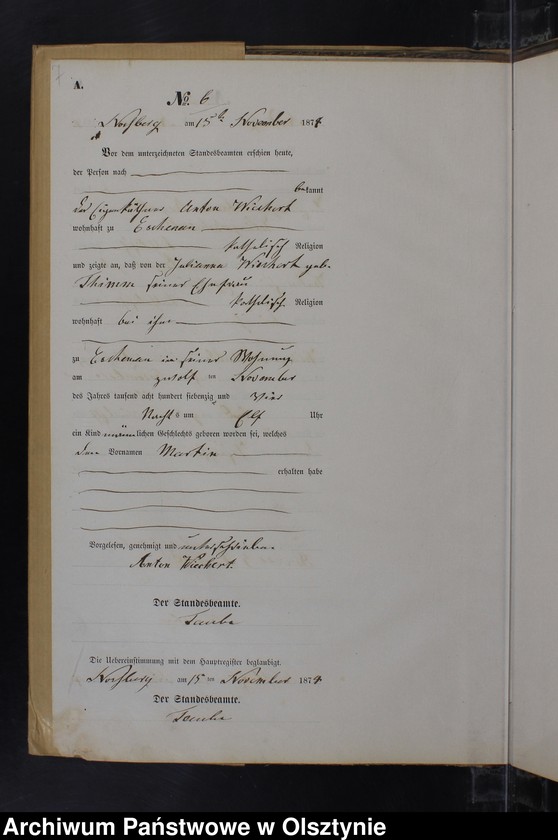 7
A.
No. 6
am 15ten November 1874
Vor dem unterzeichneten Standesbeamten erschien heute,
der Person nach
bekannt
der Eigenkäthner Anton Wiechert
wohnhaft zu Eschenau
katholischer Religion
und zeigte an, daß von der Julianna Wiechert geb.
Thimm seiner Ehefrau
katholischer Religion
wohnhaft bei ihm
zu Eschenau in seiner Wohnung
am zwölften November
des Jahres tausend acht hundert siebenzig und vier
Nachts um Elf Uhr
ein Kind männlichen Geschlechts geboren worden sei, welches
den Vornamen Martin
erhalten habe
Vorgelesen, genehmigt und unterschrieben.
Anton Wiechert.
Der Standesbeamte.
Die Uebereinstimmung mit dem Hauptregister beglaubigt.
am 15 ten November 1874
Der Standesbeamte.
Archiwum Państwowe w Olsztynie